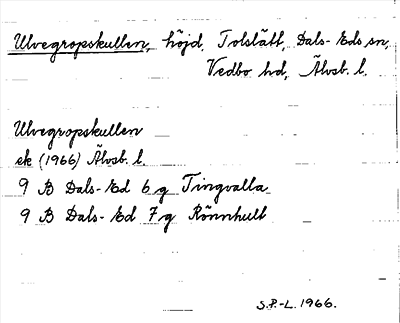 Ulvegropskullen, höjd, Tolslätt, Dals-Eds sn,
Vedbo hd, Älvsb. l.
Ulvegropskullen
ek (1966) Älvsb. l.
9 B Dals-Ed 6 g Tingvalla
9 B Dals-Ed 7 g Rönnhult
S.P.-L. 1966.